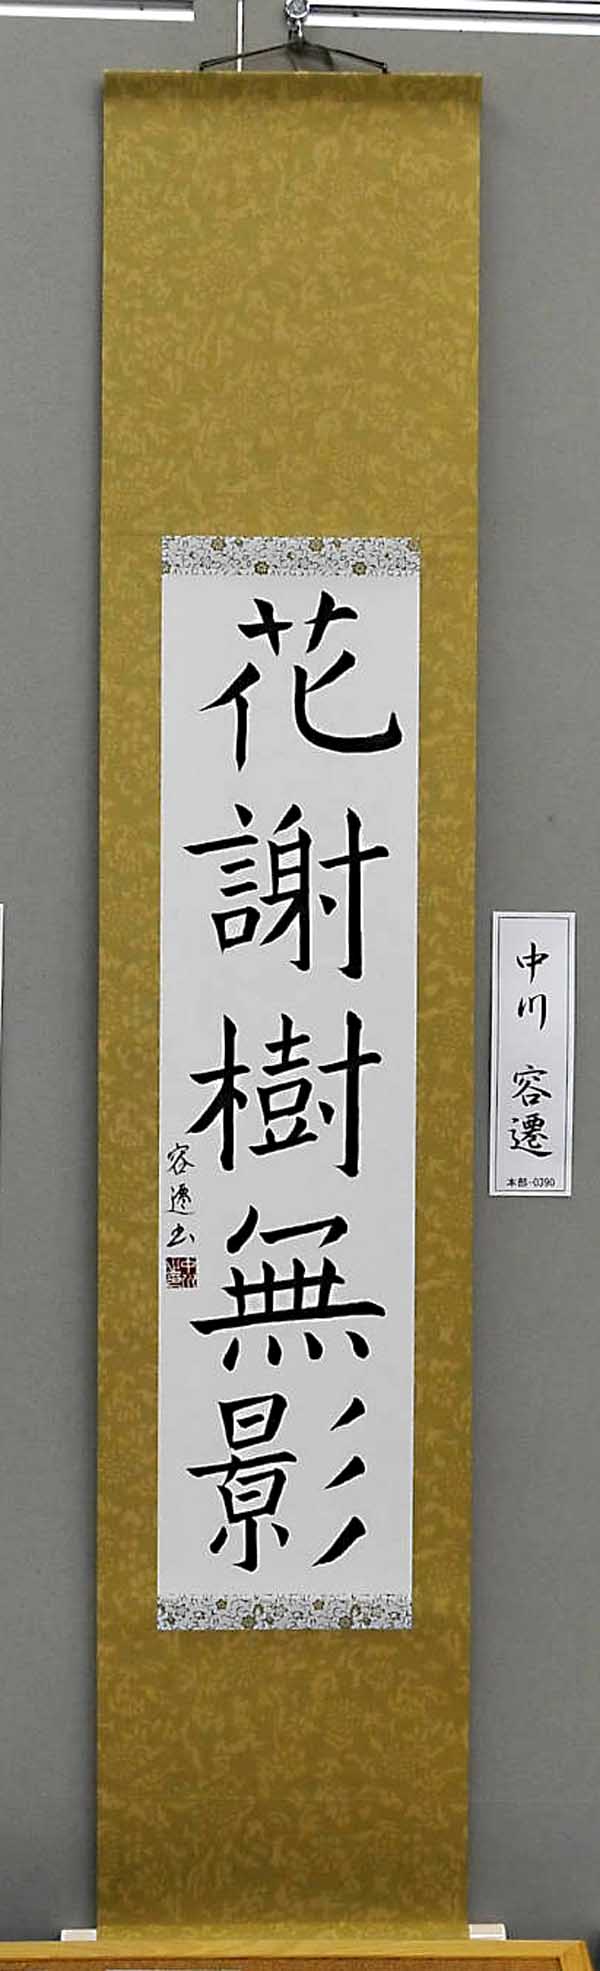 花謝樹無影
容遷書
中川 容遷
本部-0390